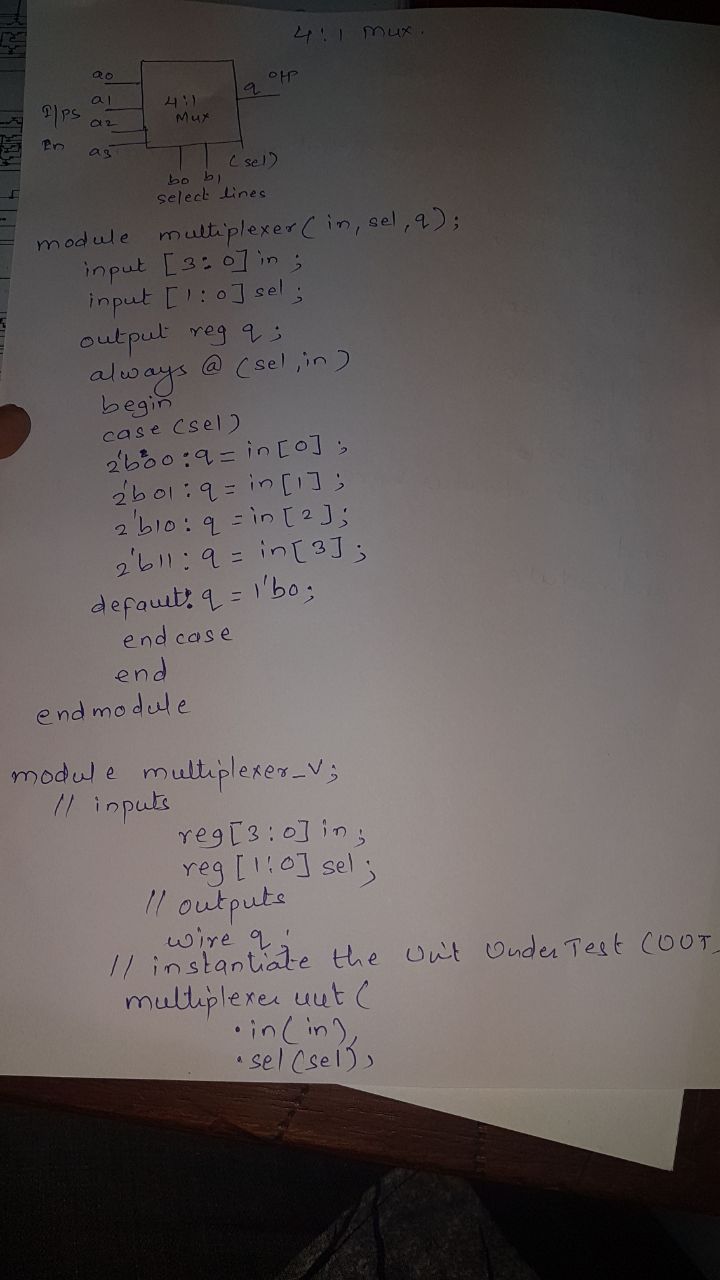 4:1 mux.
a0
a1
I/ps
a2
En
a3
4:1
Mux
q o/p
b0 b1 (sel)
select lines
module multiplexer(in, sel, q);
input [3:0] in ;
input [1:0] sel ;
output reg q ;
always @ (sel, in)
begin
case (sel)
2'b00 : q = in [0] ;
2'b01 : q = in [1] ;
2'b10 : q = in [2] ;
2'b11 : q = in [3] ;
default: q = 1'b0;
endcase
end
endmodule
module multiplexer_v;
// inputs
reg [3:0] in ;
reg [1:0] sel ;
// outputs
wire q ;
// instantiate the Unit Under Test (UUT
multiplexer uut (
.in(in),
.sel(sel),